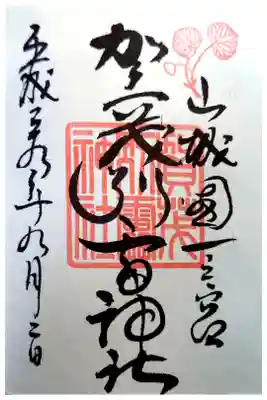 山城國一之宮
賀茂別雷神社
賀茂別雷神社
平成年九月二日